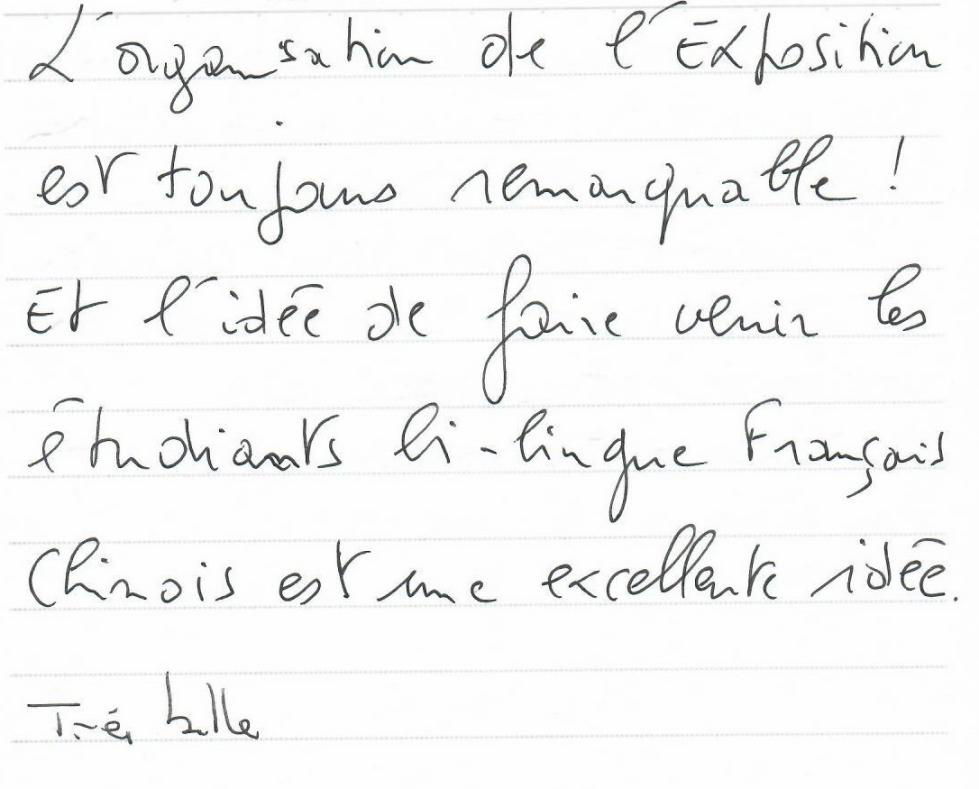 L'organisation de l'Exposition
est toujours remarquable !
Et l'idée de faire venir les
étudiants bi-lingue Français
Chinois est une excellente idée.
Très belle